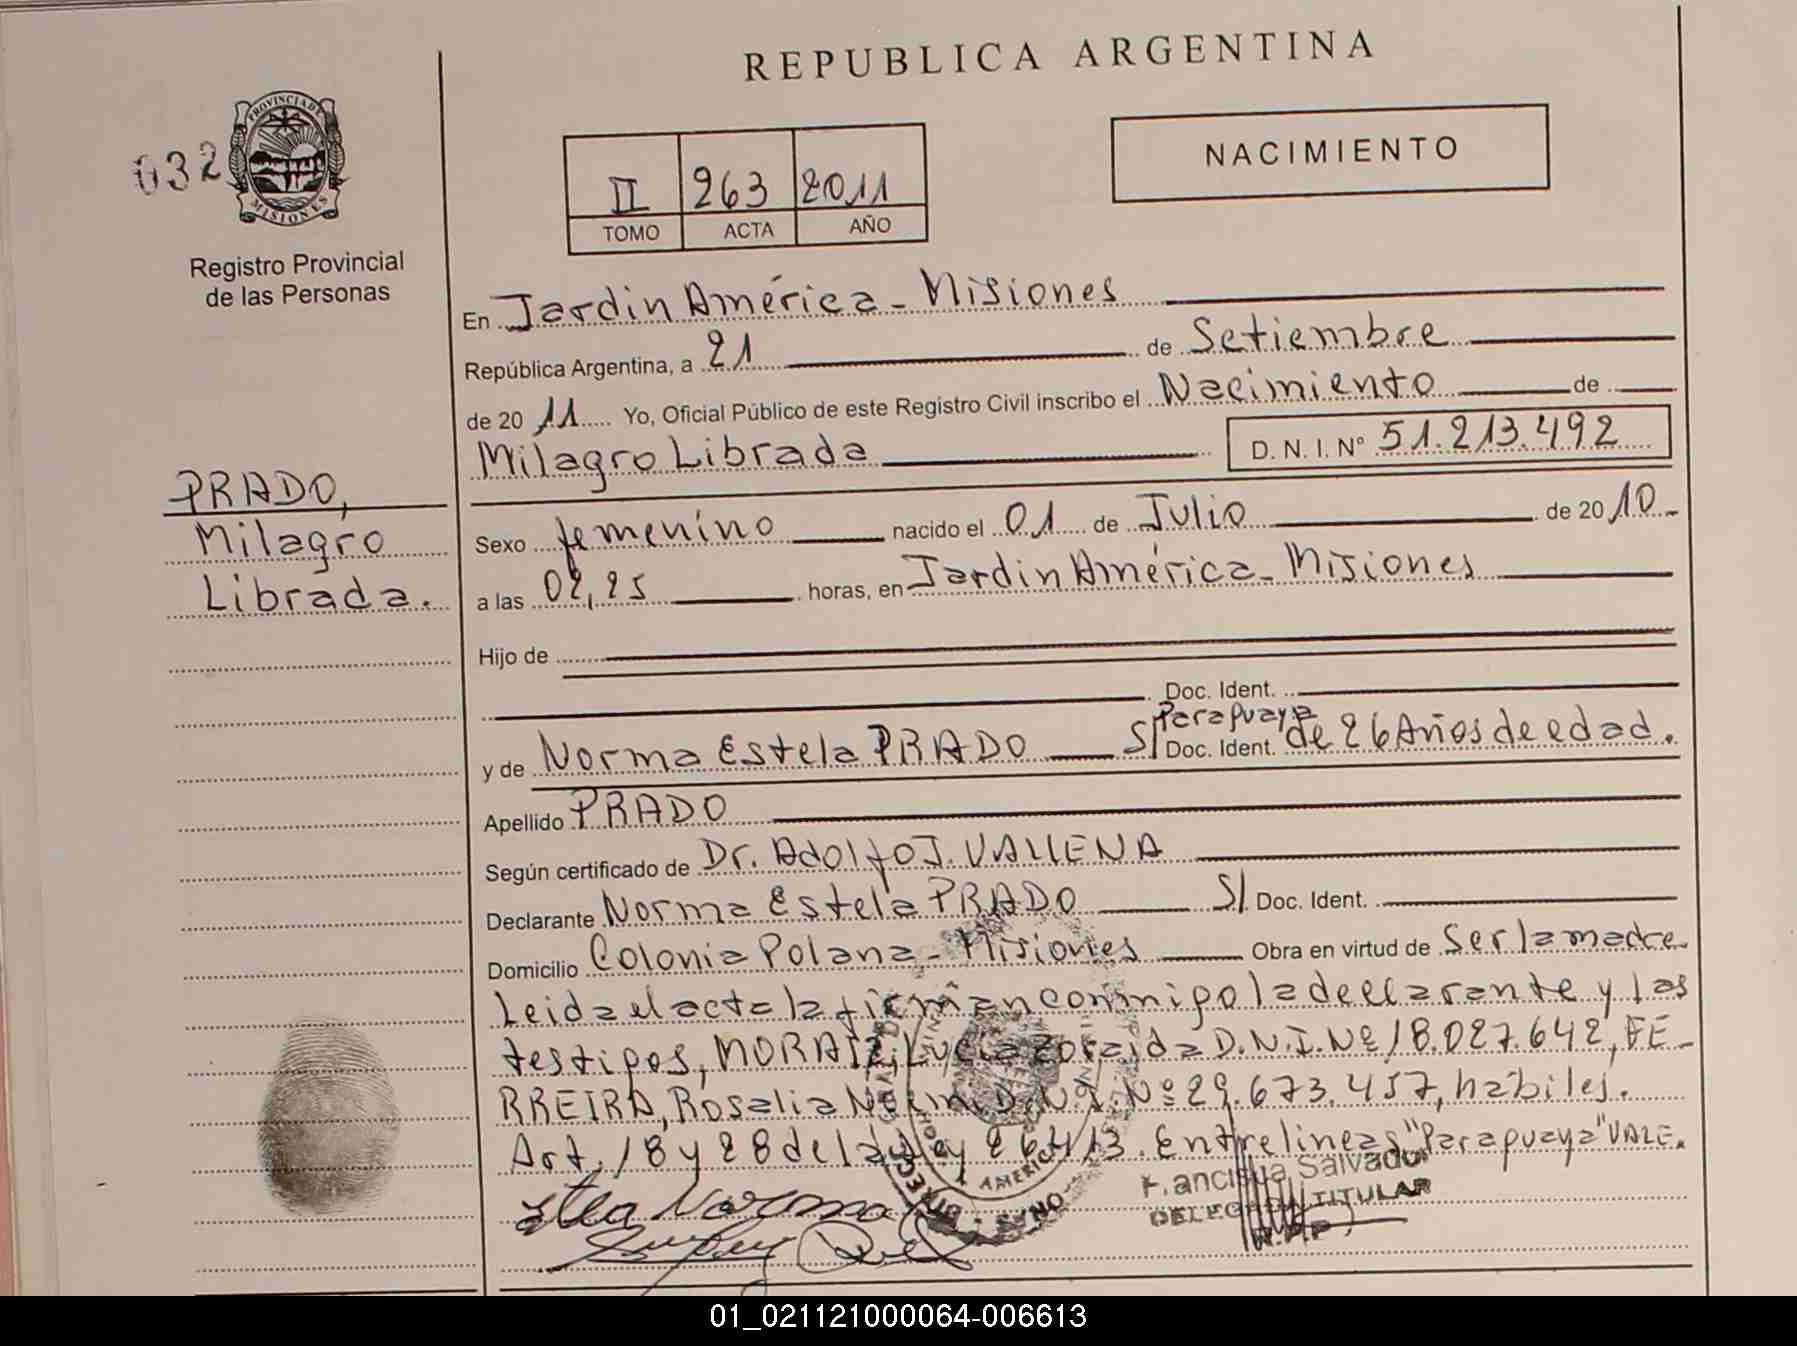 REPUBLICA ARGENTINA
032
PROVINCIA DE
MISIONES
Registro Provincial
de las Personas
II 263 2011
TOMO ACTA AÑO
NACIMIENTO
En Jardin América - Misiones
República Argentina, a 21 de Setiembre
de 20 11 Yo, Oficial Público de este Registro Civil inscribo el Nacimiento de
Milagro Librada D. N. I. Nº 51.213.492
PRADO,
Milagro
Librada.
Sexo femenino nacido el 01 de Julio de 20 10
a las 02,25 horas, en Jardin América - Misiones
Hijo de
Doc. Ident.
Paraguaya
y de Norma Estela PRADO S/ Doc. Ident. de 26 Años de edad.
Apellido PRADO
Según certificado de Dr. Adolfo J. VALLENA
Declarante Norma Estela PRADO S/ Doc. Ident.
Domicilio Colonia Polana - Misiones Obra en virtud de Ser la madre
Leida el acta la firman conmigo la declarante y las
testigos, Lucia Zoraida D.N.I. Nº 18.027.642, FE-
RREIRA, Rosalia D.N.I. Nº 29.673.457, hábiles.
Art. 18 y 28 de la ley 26413. Entrelineas "Paraguaya" VALE.
Salvador
TITULAR
01_021121000064-006613